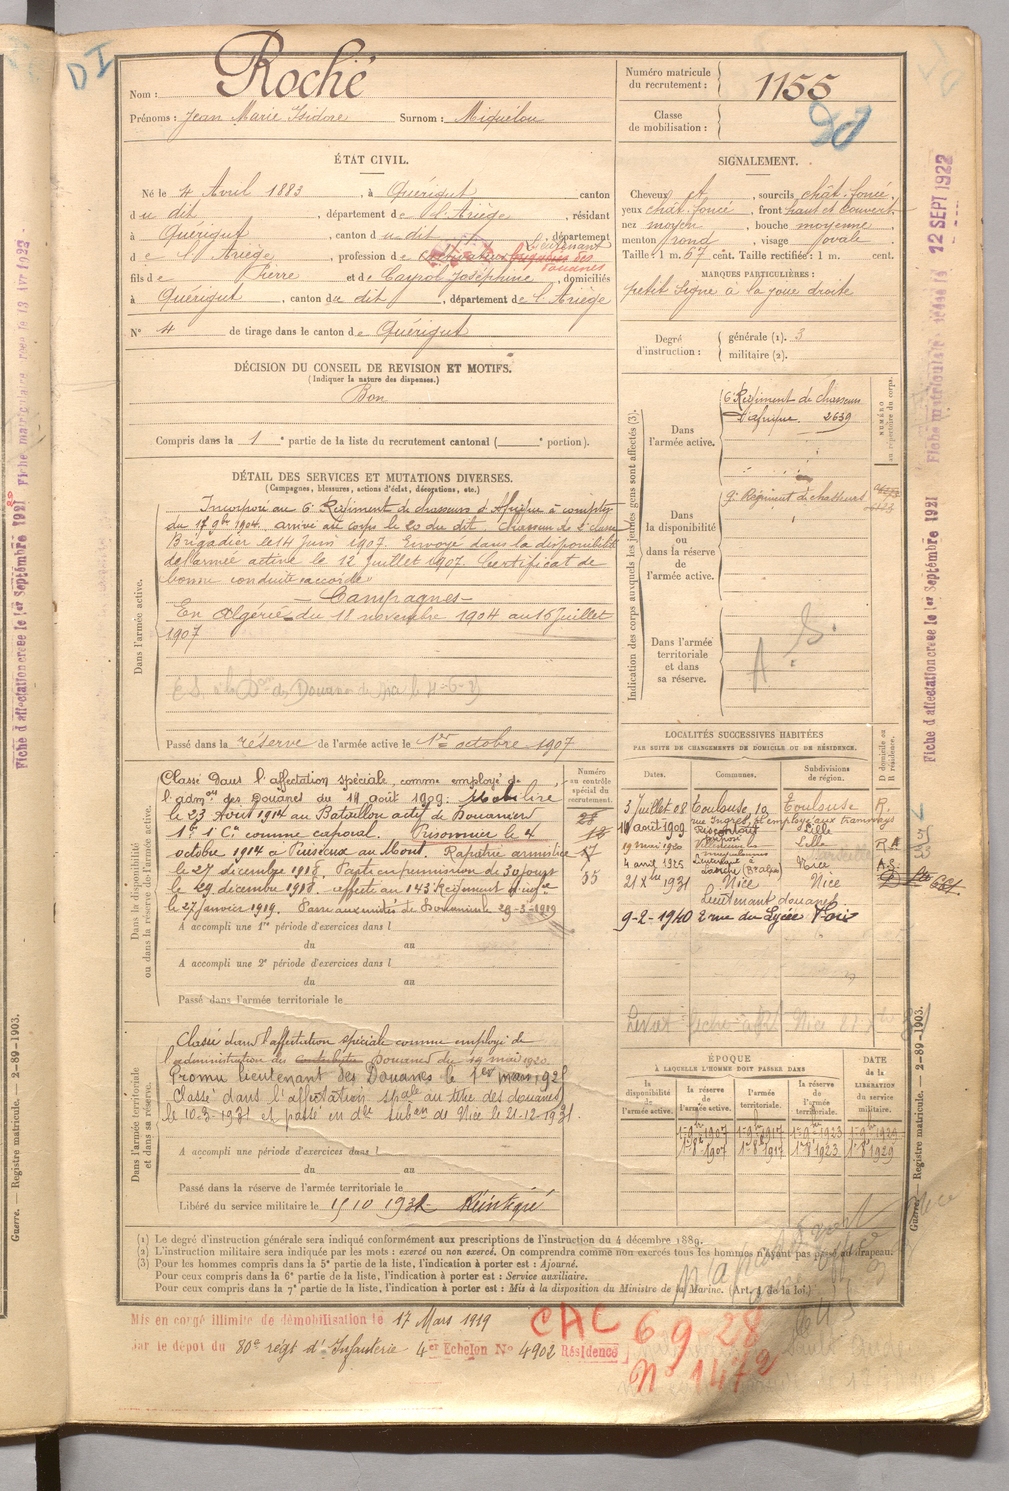 DI
Nom : Roché
Prénoms : Jean Marie Isidore Surnom : Miquélou
Numéro matricule du recrutement : 1155
Classe de mobilisation :
ÉTAT CIVIL.
Né le 4 Avril 1883, à Quérigut canton
du dit, département de l'Ariège, résidant
à Quérigut, canton du dit, département
Lieutenant
de l'Ariège, profession de cultivateur des
Douanes
fils de Pierre et de Cayrol Joséphine, domiciliés
à Quérigut, canton du dit, département de l'Ariège
N° 4 de tirage dans le canton de Quérigut
SIGNALEMENT.
Cheveux et, sourcils chât. foncé,
yeux chât. foncé, front haut et couvert,
nez moyen, bouche moyenne,
menton rond, visage ovale.
Taille : 1 m. 67 cent. Taille rectifiée : 1 m. cent.
MARQUES PARTICULIÈRES :
petit signe à la joue droite
Degré d'instruction : générale (1). 3
militaire (2).
DÉCISION DU CONSEIL DE REVISION ET MOTIFS.
(Indiquer la nature des dispenses.)
Bon
Compris dans la 1e partie de la liste du recrutement cantonal ( e portion).
DÉTAIL DES SERVICES ET MUTATIONS DIVERSES.
(Campagnes, blessures, actions d'éclat, décorations, etc.)
Dans l'armée active.
Incorporé au 6e Régiment de chasseurs d'Afrique à compter
du 17 9bre 1904. arrivé au corps le 20 du dit Chasseur de 2e classe
Brigadier le 14 Juin 1907. Envoyé dans la disponibilité
de l'armée active le 12 Juillet 1907. Certificat de
bonne conduite accordé
— Campagnes —
En Algérie du 18 novembre 1904 au 15 Juillet
1907
Passé dans la réserve de l'armée active le 1er octobre 1907
Indication des corps auxquels les jeunes gens sont affectés (3).
Dans l'armée active.
6e Régiment de chasseurs
d'afrique. 2639
NUMÉRO au répertoire du corps.
Dans la disponibilité ou dans la réserve de l'armée active.
9e Régiment de chasseurs
Dans l'armée territoriale et dans sa réserve.
Dans la disponibilité ou dans la réserve de l'armée active.
Classé dans l'affectation spéciale, comme employé de
l'admon des Douanes du 11 août 1909. Mobilisé
le 23 Août 1914 au Bataillon actif de Douaniers
1re Cie comme caporal. Prisonnier le 4
octobre 1914 à Puiseux au Mont. Rapatrié armistice
le 27 décembre 1918. Parti en permission de 30 jours
le 29 décembre 1918. affecté au 143 Régiment d'infie
le 27 janvier 1919. Passé aux unités de Douaniers le 29-3-1919
Numéro au contrôle spécial du recrutement.
A accompli une 1re période d'exercices dans l
du au
A accompli une 2e période d'exercices dans l
du au
Passé dans l'armée territoriale le
LOCALITÉS SUCCESSIVES HABITÉES
PAR SUITE DE CHANGEMENTS DE DOMICILE OU DE RÉSIDENCE.
Dates. Communes. Subdivisions de région. D domicile ou R résidence.
3 Juillet 08 Toulouse, 19 Toulouse R.
rue Ingres, 51 employé aux tramways
11 août 1909 Lille
19 mai 1920 Lille R.
4 avril 1925 Nice
21 Xbre 1931 Nice Nice
Lieutenant douanes
9-2-1940 2 rue du Lycée Foix
Dans l'armée territoriale et dans sa réserve.
Classé dans l'affectation spéciale comme employé de
l'administration des Douanes du 19 mai 1920.
Promu lieutenant des Douanes le 1er mars 1928
Classé dans l'affectation spale au titre des douanes
le 10-3-1931 et passé en dle subon de Nice le 21-12-1931.
A accompli une période d'exercices dans l
du au
Passé dans la réserve de l'armée territoriale le
Libéré du service militaire le 15 10 1932 Réintégré
ÉPOQUE
À LAQUELLE L'HOMME DOIT PASSER DANS
la disponibilité de l'armée active. la réserve de l'armée active. l'armée territoriale. la réserve de l'armée territoriale. DATE de la LIBÉRATION du service militaire.
1er 9bre 1907 1er 9bre 1917 1er 9bre 1923 1er 9bre 1929
1er 8bre 1907 1er 8bre 1917 1er 8bre 1923 1er 8bre 1929
(1) Le degré d'instruction générale sera indiqué conformément aux prescriptions de l'instruction du 4 décembre 1889.
(2) L'instruction militaire sera indiquée par les mots : exercé ou non exercé. On comprendra comme non exercés tous les hommes n'ayant pas passé au drapeau.
(3) Pour les hommes compris dans la 5e partie de la liste, l'indication à porter est : Ajourné.
Pour ceux compris dans la 6e partie de la liste, l'indication à porter est : Service auxiliaire.
Pour ceux compris dans la 7e partie de la liste, l'indication à porter est : Mis à la disposition du Ministre de la Marine. (Art. 4 de la loi.)
Mis en congé illimité de démobilisation le 17 Mars 1919
par le dépot du 80e régt d'Infanterie 4er Echelon N° 4902 Résidence
CAC 6 9 28
N° 1472
Guerre. — Registre matricule. — 2-89-1903.
Guerre. — Registre matricule. — 2-89-1903.
Fiche d'affectation créée le 1er Septembre 1921
Fiche d'affectation créée le 1er Septembre 1921
Fiche matricule
12 SEPT 1922